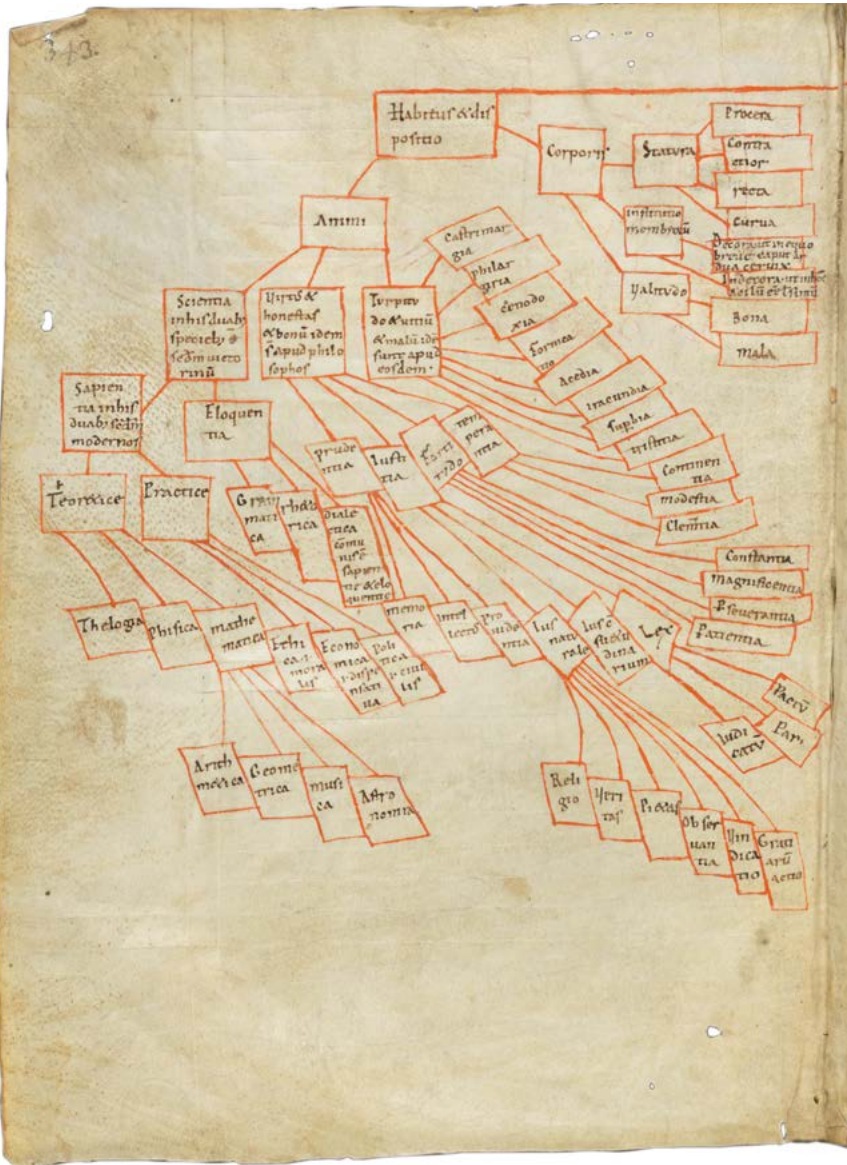 343.
Habitus & dis
positio
Corporis
Statura
Procera
Contra
ctior
recta
curva
membrorū
Decora ut in equo
breve caput ar
dua cervix
Valitudo
Bona
Mala
Animi
Scientia
in his duab;
specieb;
victo
rinū
Virtus &
honestas
& bonū idem
apud philo
sophos
Turpitu
do & vitiū
& malū idē
sunt apud
eosdem.
Castrimar
gia
philar
gria
cenodo
xia
fornica
tio
Acedia
iracundia
supbia
tristitia
Continen
tia
modestia
Clemtia
Constantia
Magnificentia
Pseverantia
Patientia
Sapien
tia in his
duab;
modernos
Eloquen
tia
Teorice
Practice
Gram
matica
rhetorica
diale
ctica
cōmu
nis ē
sapien
tie & elo
quentie
prude
ntia
Iusti
tia
Forti
tudo
tem
pera
ntia
Thelogia
Phisica
mathe
matica
Ethi
ca
mora
lis
Econo
mica
dispe
nsativa
Poli
tica
civi
lis
memo
ria
Intel
lectus
Pro
videntia
Ius
natu
rale
Ius c̄
suetu
dina
rium
Lex
Pactū
Pari
Iudi
catū
Arith
metica
Geome
trica
musi
ca
Astro
nomia
Reli
gio
Veri
tas
Pietas
Obser
van
tia
Vin
dica
tio
Grati
arū
actio